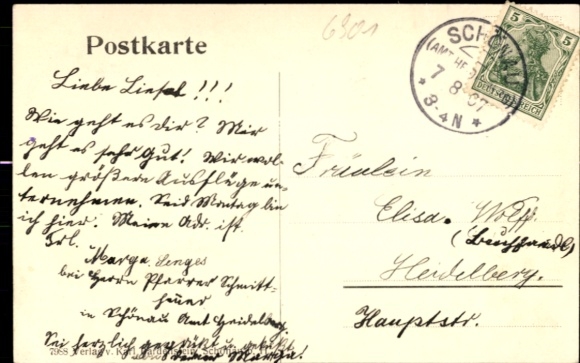 6901
Postkarte
SCHÖNAU
(AMT HEID
7 8 07
3-4 N
5 5
DEUTSCHES REICH
Liebe Liesel!!!
Wie geht es dir? Mir
geht es sehr Gut! Wir wol-
len größere Ausflüge un-
ternehmen. Seid Montag bin
ich hier. Meine Adr. ist
Frl.
Marga Senges
bei Herrn Pfarrer Schmitt-
henner
in Schönau Amt Heidelberg.
Sei herzlich gegrüßt u. geküßt
von deiner Marga!
Fräulein
Elisa. Wolff
(Buchhandl)
Heidelberg.
Hauptstr.
7968 Verlag v. Karl